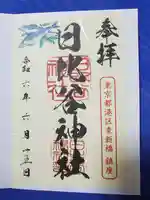 参拝
東京都港区東新橋 鎮座
日比谷神社
令和六年六月十五日